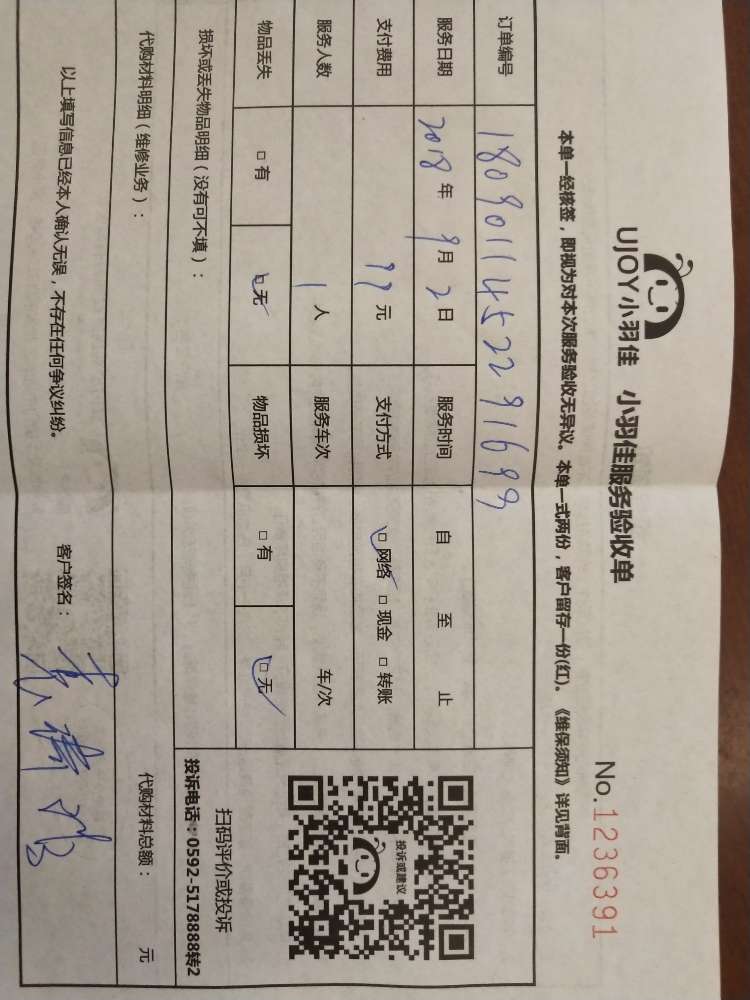 UJOY小羽佳 小羽佳服务验收单
No.1236391
本单一经核签，即视为对本次服务验收无异议。本单一式两份，客户留存一份(红)。《维保须知》详见背面。
订单编号 1809011452291699
服务日期 2018年9月2日 服务时间 自 至 止
支付费用 99元 支付方式 网络 现金 转账
服务人数 1人 服务车次 车/次
物品丢失 有 无 物品损坏 有 无
投诉或建议
扫码评价或投诉
投诉电话：0592-5178888转2
损坏或丢失物品明细（没有可不填）：
代购材料明细（维修业务）： 代购材料总额： 元
以上填写信息已经本人确认无误，不存在任何争议纠纷。 客户签名：